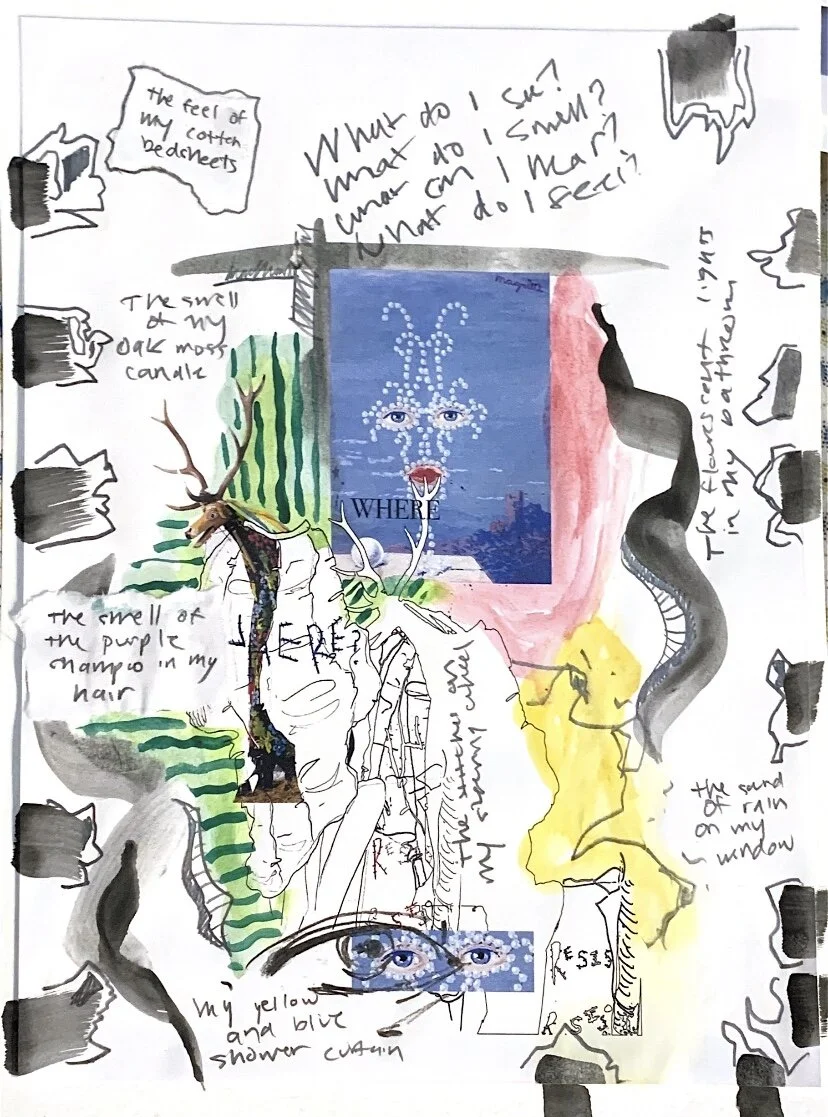 the feel of
my cotton
bedsheets
What do I see?
What do I smell?
What can I hear?
What do I feel?
The smell
of my
Oak moss
candle
magritte
WHERE
The flourescent lights
in my bathroom
the smell of
the purple
shampoo in my
hair
WHERE?
The stitches on
my steering wheel
the sound
of rain
on my
window
RES
RESIS
my yellow
and blue
shower curtain